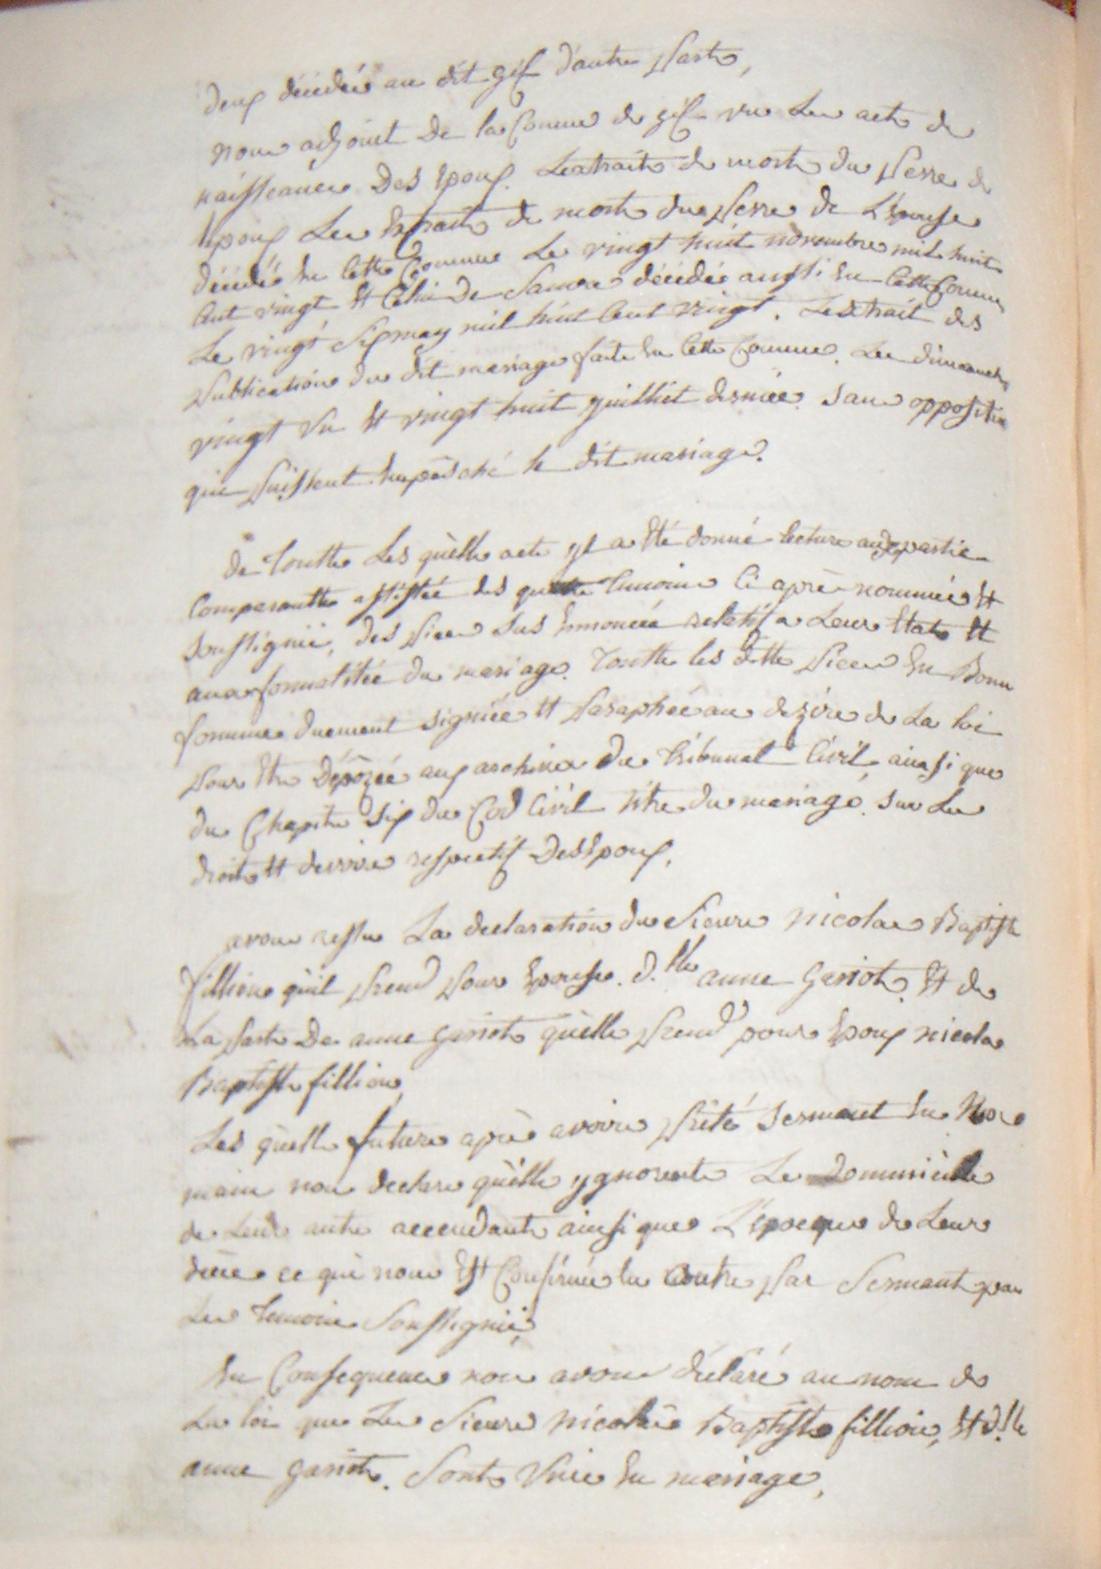 deux décédée au dit gif d'autre Part,
nous adjoint De la Comune de gif vu Les acte de
naisseance Des Epoux. Lextraite de morte du Perre de
Epoux Les Extraite de morte du Perre de L'Epouse
décédé En Cette Comune Le vingt huit novembre mil huit
Cent vingt Et Celui De Samere décédée aussi En Cette Comune
Le vingt Six may mil huit Cent vingt. Lextrait des
Publications du dit mariage faite En Cette Comune. Les dimanche
vingt un Et vingt huit juilliet dernier. sans opposition
qui Puissent Empêsché le dit mariage.
de Toutte Les quelle acte yl a Eté donné lecture aux partie
Comparantte assistée des quatre Temoins Ci après nommée Et
Soussignié, des Piece sus Ennoncée relatif a Leur Etat Et
aux formalitée du mariage. Toutte les ditte Piece En Bonne
formme duement signiée Et Paraphée au dezire de La loi
Pour Etre Dépôzée aux archive du Tribunal Civil, ainsi que
du Chapitre Six du Cod Civil titre du mariage, sur Les
droit Et devoire respectif Des Epoux.
avons ressu La declaration du Sieure Nicolas Baptiste
fillion qu'il Prend Pour Epouse. d.lle anne Gariot. Et de
La Part De anne Gariot qu'elle Prend pour Epoux nicolas
Baptiste fillion,
Les quelle future après avoire Prêté Sermant En Nos
main nou declare qu'ille ygnorente Le Dommicille
de Leur autre accendante ainsi que L'époque de Leur
décée ce qui nous Est Confirmée En outre Par Sermant par
Les Temoins Soussignié,
En Consequence nou avons déclaré au nom de
La loi que Le Sieure Nicolas Baptiste fillion, Et d.lle
anne Gariot. Sont Unie En mariage,